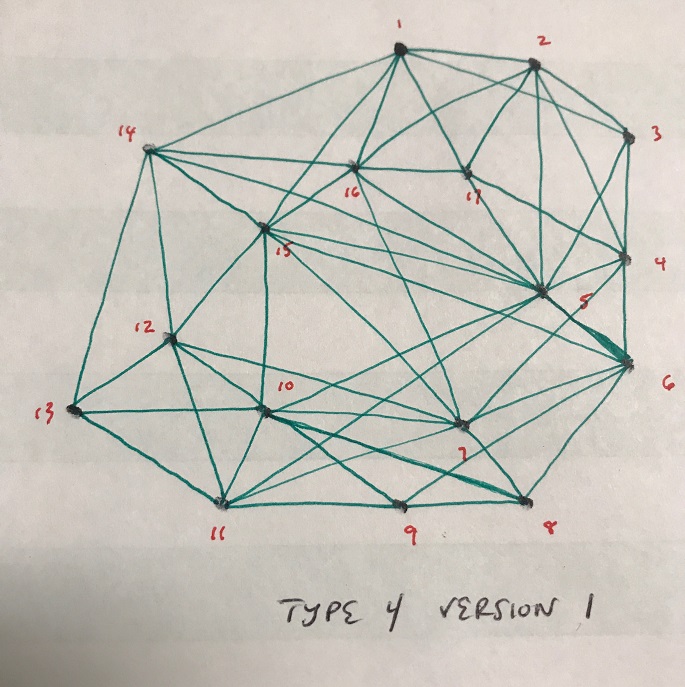 1
2
3
14
16
17
15
4
5
12
6
10
13
7
11
9
8
TYPE 4 VERSION 1